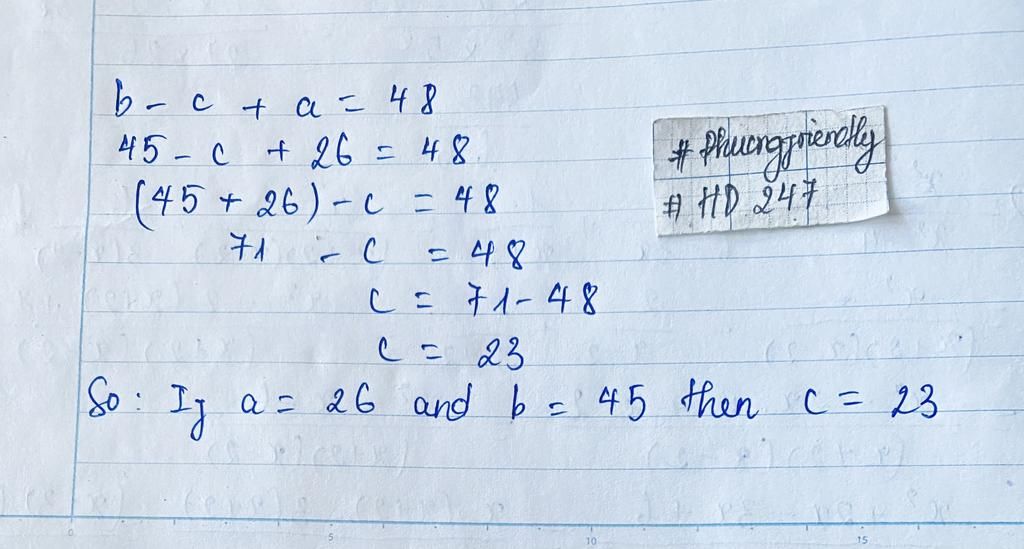 b - c + a = 48
45 - c + 26 = 48
(45 + 26) - c = 48
71 - c = 48
c = 71 - 48
c = 23
So: If a = 26 and b = 45 then c = 23
# Phuongfriendly
# HD 247
0 5 10 15